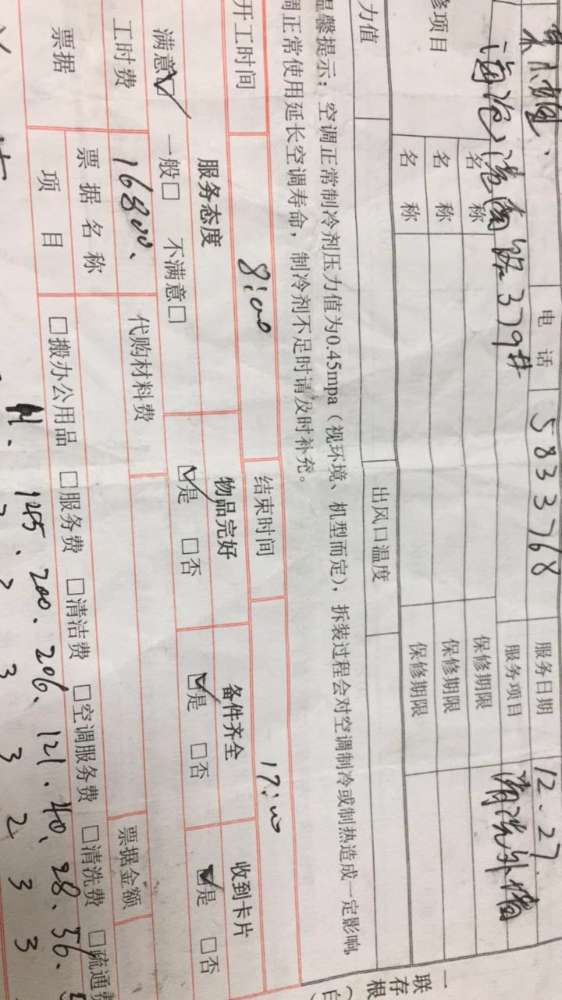 电话 5833768 服务日期 12.27
海沧沧南路379# 服务项目 清洗外墙
修项目 名称 保修期限
名称 保修期限
名称 保修期限
力值 出风口温度
温馨提示：空调正常制冷剂压力值为0.45mpa（视环境、机型而定），拆装过程会对空调制冷或制热造成一定影响
调正常使用延长空调寿命，制冷剂不足时请及时补充。
开工时间 8:00 结束时间 17:00
服务态度 物品完好 备件齐全 收到卡片
满意☑ 一般□ 不满意□ ☑是 □否 ☑是 □否 ☑是 □否
工时费 16800. 代购材料费 票据金额
票据 票据名称
项目 □搬办公用品 □服务费 □清洁费 □空调服务费 □清洗费 □疏通费
145. 200. 206. 121. 40. 28. 56.
3 3 2 3 3
一
联
存
根